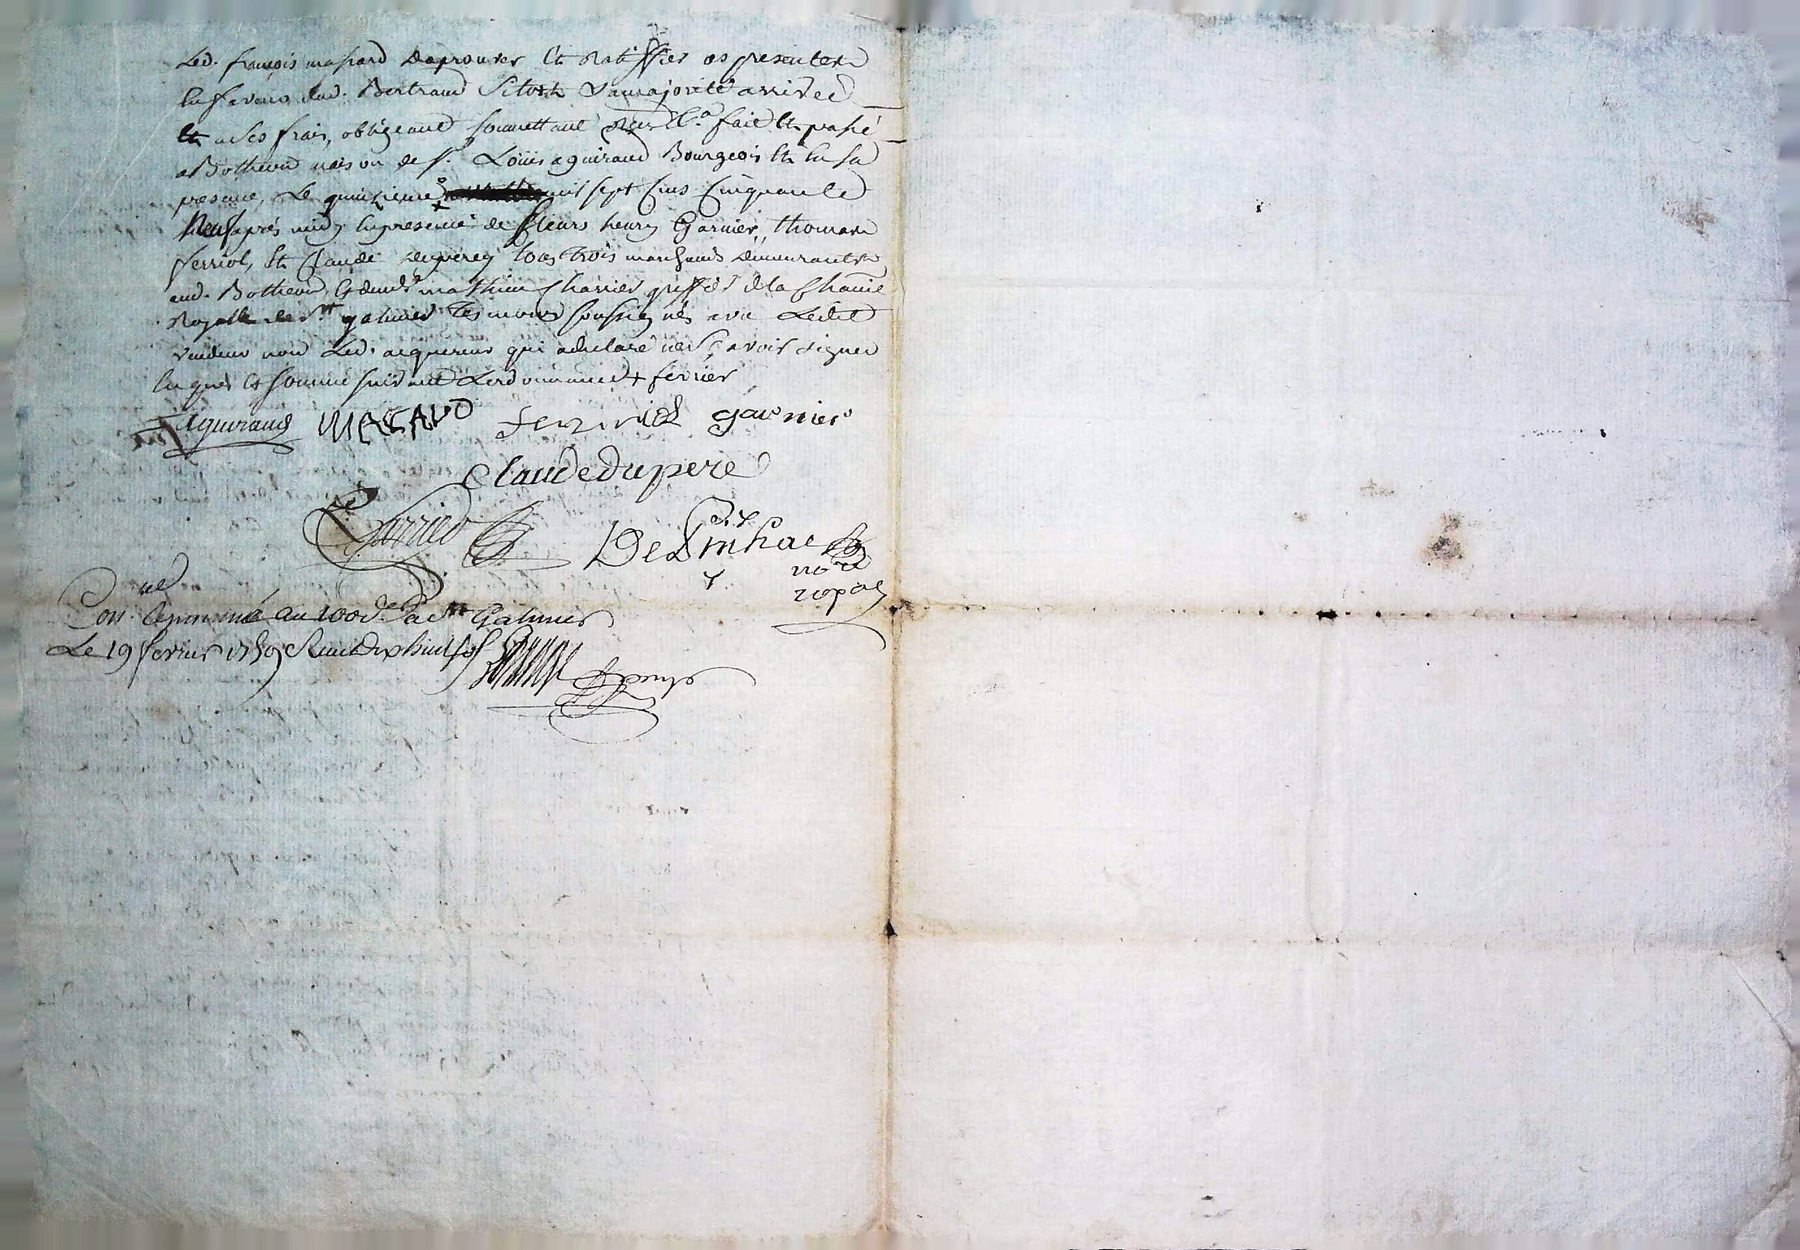 Led. françois masard daprouver Et Ratiffier Ces presentes
En faveur dud. Bertrand Sitost Samajorité arrivée
Et a Ses frais, obligeant soumettant Fait Et passé
a Bothéon maison de Sr. Loüis aguiraud Bourgeois Et En Sa
presence, Le quinzieme mil sept Cens Cinquante
Neuf après midy En presence de Sieurs henry Garnier, thomas
ferriol, Et Claude duperey tous trois marchands demeurants
aud. Bothéon Et de mathieu Charrier greffier de la
Royalle de St galmier Temoins soussignés avec Ledit
vendeur non Led. acquereur qui a declaré ne Scavoir signer
Enquis Et sommé suivant Lordonnance + fevrier
Aguiraud MAGAND ferriol garnier
Claude dupere
Charrier
no.re
royal
Con.lé au 100.e d. a St Galmier
Le 19 fevrier 1759 Dix huit sols